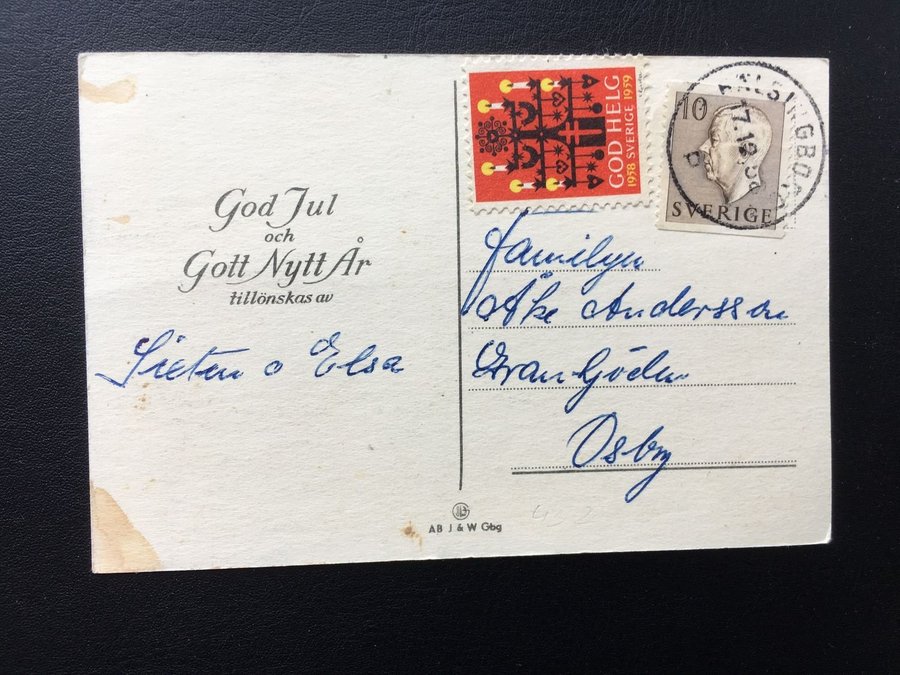 God Jul
och
Gott Nytt År
tillönskas av
o Elsa
GOD HELG
1958 SVERIGE 1959
10
SVERIGE
HÄLSINGBORG
familjen
Åke Andersson
Osby
AB J & W Gbg